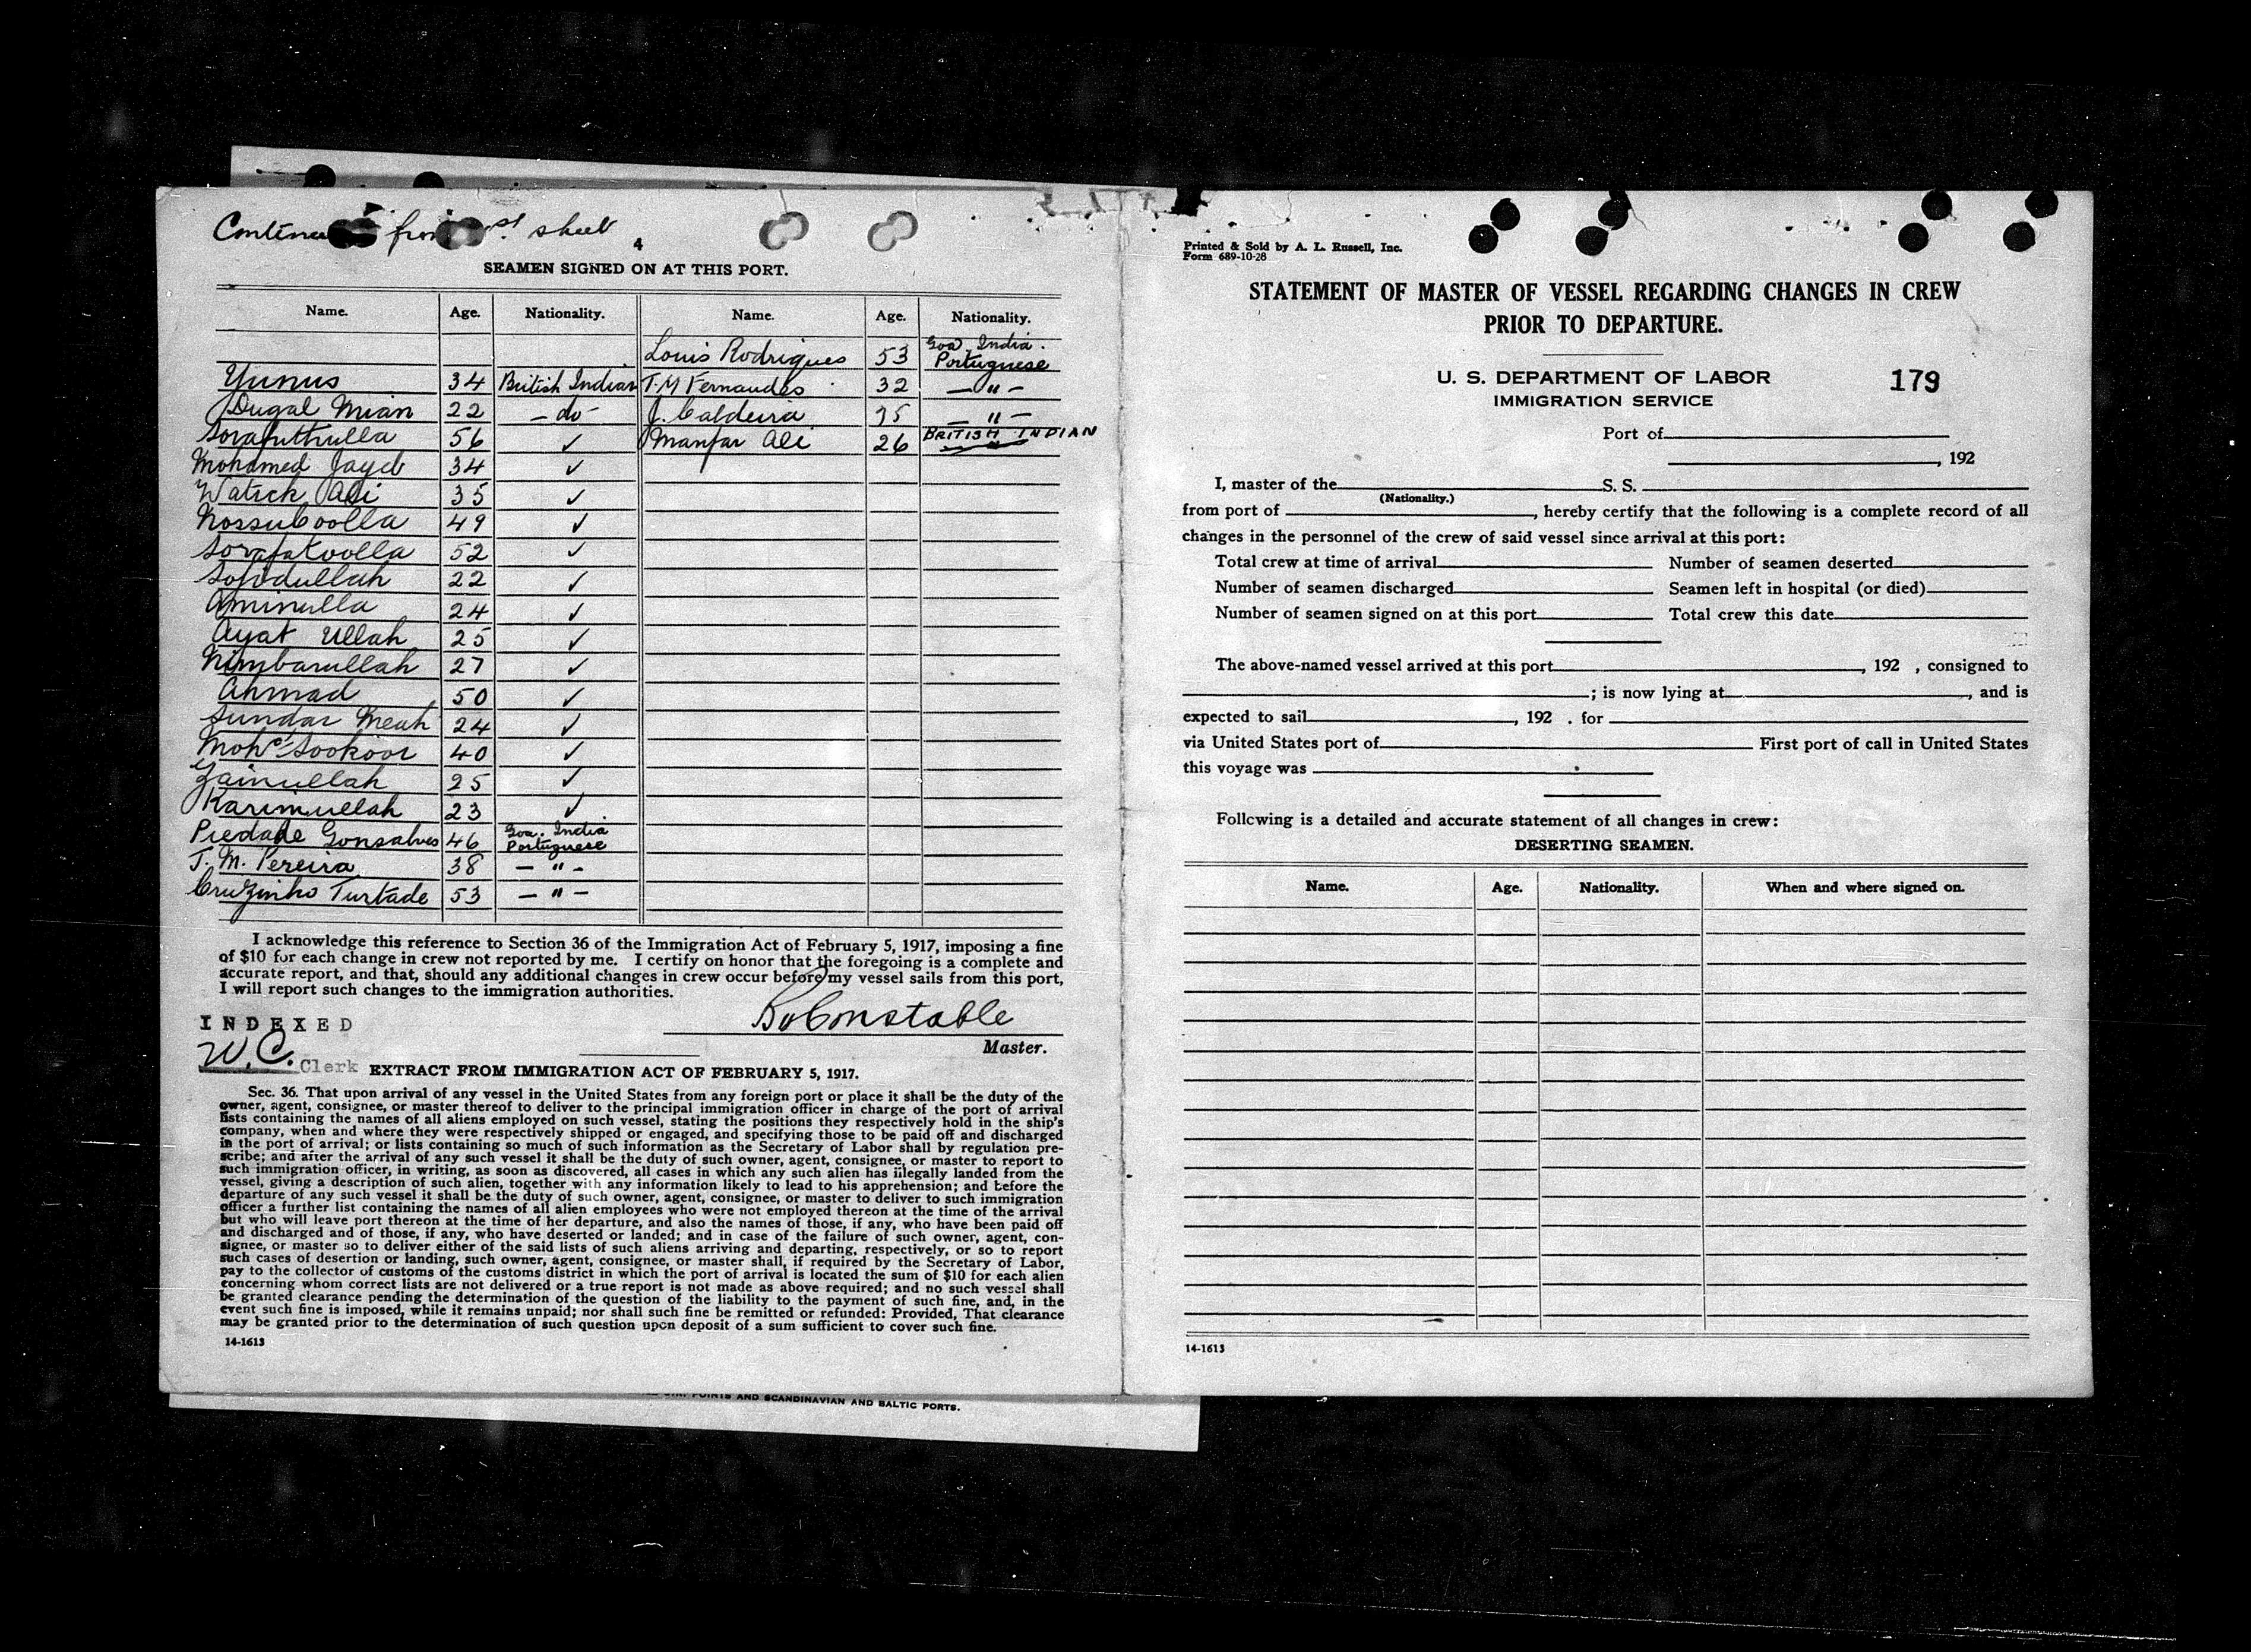 Continued from 1st sheet
4
SEAMEN SIGNED ON AT THIS PORT.
Name. Age. Nationality. Name. Age. Nationality.
Louis Rodrigues 53 Goa. India. Portuguese
Yunus 34 British Indian T. M Fernandes 32 — " —
Dugal Mian 22 — do — J. Caldeira 35 — " —
Sorafuthulla 56 ✓ Manfar Ali 26 BRITISH INDIAN
Mohamed Jayd 34 ✓
Watick Ali 35 ✓
Nossuboolla 49 ✓
Sorafatoolla 52 ✓
Sofodullah 22 ✓
Aminulla 24 ✓
Ayat Ullah 25 ✓
Nimbarullah 27 ✓
Ahmad 50 ✓
Sundar Meah 24 ✓
Mohd Sookoor 40 ✓
Zainullah 25 ✓
Karimullah 23 ✓
Piedade Gonsalves 46 Goa. India Portuguese
T. M. Pereira 38 — " —
Cruzinho Turtade 53 — " —
I acknowledge this reference to Section 36 of the Immigration Act of February 5, 1917, imposing a fine
of $10 for each change in crew not reported by me. I certify on honor that the foregoing is a complete and
accurate report, and that, should any additional changes in crew occur before my vessel sails from this port,
I will report such changes to the immigration authorities.
Constable
Master.
INDEXED
W.C. Clerk
EXTRACT FROM IMMIGRATION ACT OF FEBRUARY 5, 1917.
Sec. 36. That upon arrival of any vessel in the United States from any foreign port or place it shall be the duty of the
owner, agent, consignee, or master thereof to deliver to the principal immigration officer in charge of the port of arrival
lists containing the names of all aliens employed on such vessel, stating the positions they respectively hold in the ship's
company, when and where they were respectively shipped or engaged, and specifying those to be paid off and discharged
in the port of arrival; or lists containing so much of such information as the Secretary of Labor shall by regulation pre-
scribe; and after the arrival of any such vessel it shall be the duty of such owner, agent, consignee, or master to report to
such immigration officer, in writing, as soon as discovered, all cases in which any such alien has illegally landed from the
vessel, giving a description of such alien, together with any information likely to lead to his apprehension; and before the
departure of any such vessel it shall be the duty of such owner, agent, consignee, or master to deliver to such immigration
officer a further list containing the names of all alien employees who were not employed thereon at the time of the arrival
but who will leave port thereon at the time of her departure, and also the names of those, if any, who have been paid off
and discharged and of those, if any, who have deserted or landed; and in case of the failure of such owner, agent, con-
signee, or master so to deliver either of the said lists of such aliens arriving and departing, respectively, or so to report
such cases of desertion or landing, such owner, agent, consignee, or master shall, if required by the Secretary of Labor,
pay to the collector of customs of the customs district in which the port of arrival is located the sum of $10 for each alien
concerning whom correct lists are not delivered or a true report is not made as above required; and no such vessel shall
be granted clearance pending the determination of the question of the liability to the payment of such fine, and, in the
event such fine is imposed, while it remains unpaid; nor shall such fine be remitted or refunded: Provided, That clearance
may be granted prior to the determination of such question upon deposit of a sum sufficient to cover such fine.
14-1613
POINTS AND SCANDINAVIAN AND BALTIC PORTS.
Printed & Sold by A. L. Russell, Inc.
Form 689-10-28
STATEMENT OF MASTER OF VESSEL REGARDING CHANGES IN CREW
PRIOR TO DEPARTURE.
U. S. DEPARTMENT OF LABOR
IMMIGRATION SERVICE
179
Port of
, 192
I, master of the S. S.
(Nationality.)
from port of , hereby certify that the following is a complete record of all
changes in the personnel of the crew of said vessel since arrival at this port:
Total crew at time of arrival Number of seamen deserted
Number of seamen discharged Seamen left in hospital (or died)
Number of seamen signed on at this port Total crew this date
The above-named vessel arrived at this port , 192 , consigned to
; is now lying at , and is
expected to sail , 192 . for
via United States port of First port of call in United States
this voyage was
Following is a detailed and accurate statement of all changes in crew:
DESERTING SEAMEN.
Name. Age. Nationality. When and where signed on.
14-1613